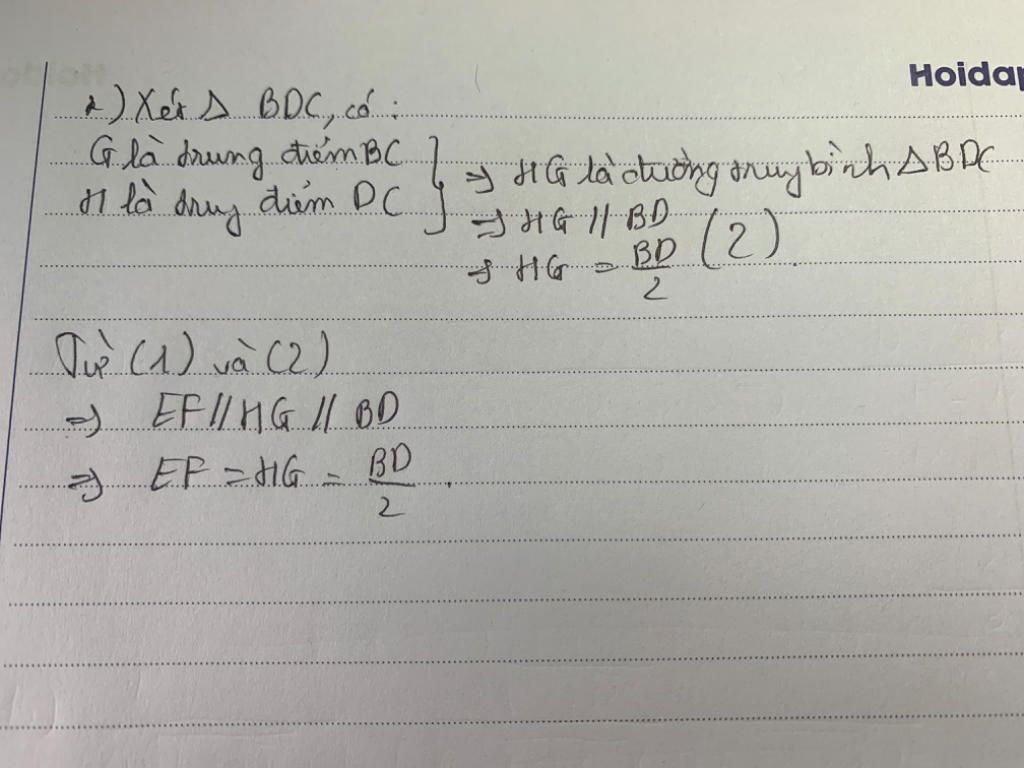 Hoidap
2) Xét Δ BDC, có:
G là trung điểm BC
H là trung điểm DC
⇒ HG là đường trung bình Δ BDC
⇒ HG // BD
⇒ HG = BD/2 (2).
Từ (1) và (2)
⇒ EF // HG // BD
⇒ EF = HG = BD/2.